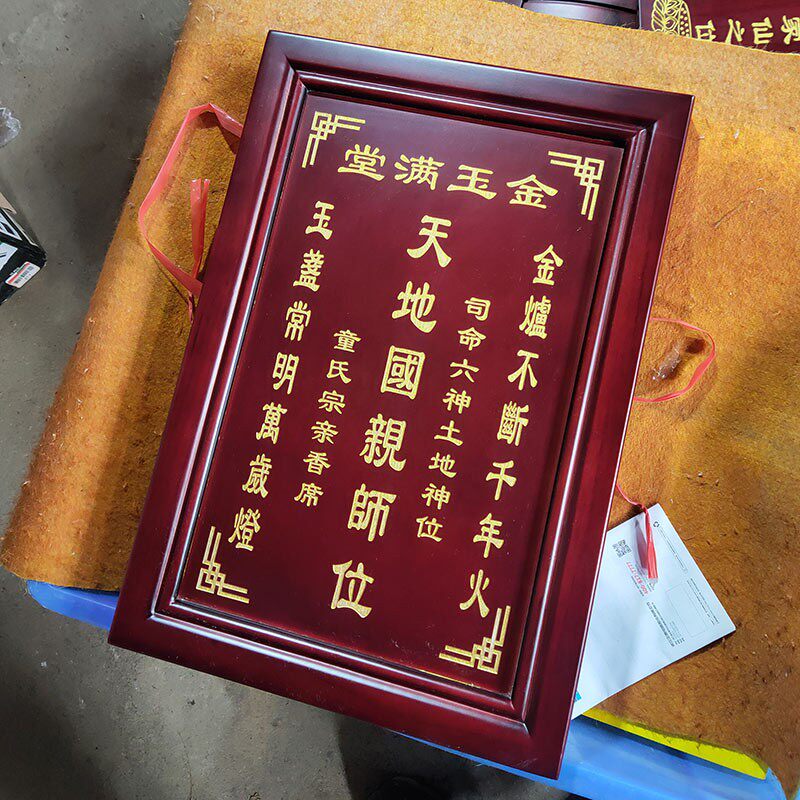 金玉满堂
金爐不斷千年火
司命六神土地神位
天地國親師位
童氏宗亲香席
玉盞常明萬歲燈
家仙之位